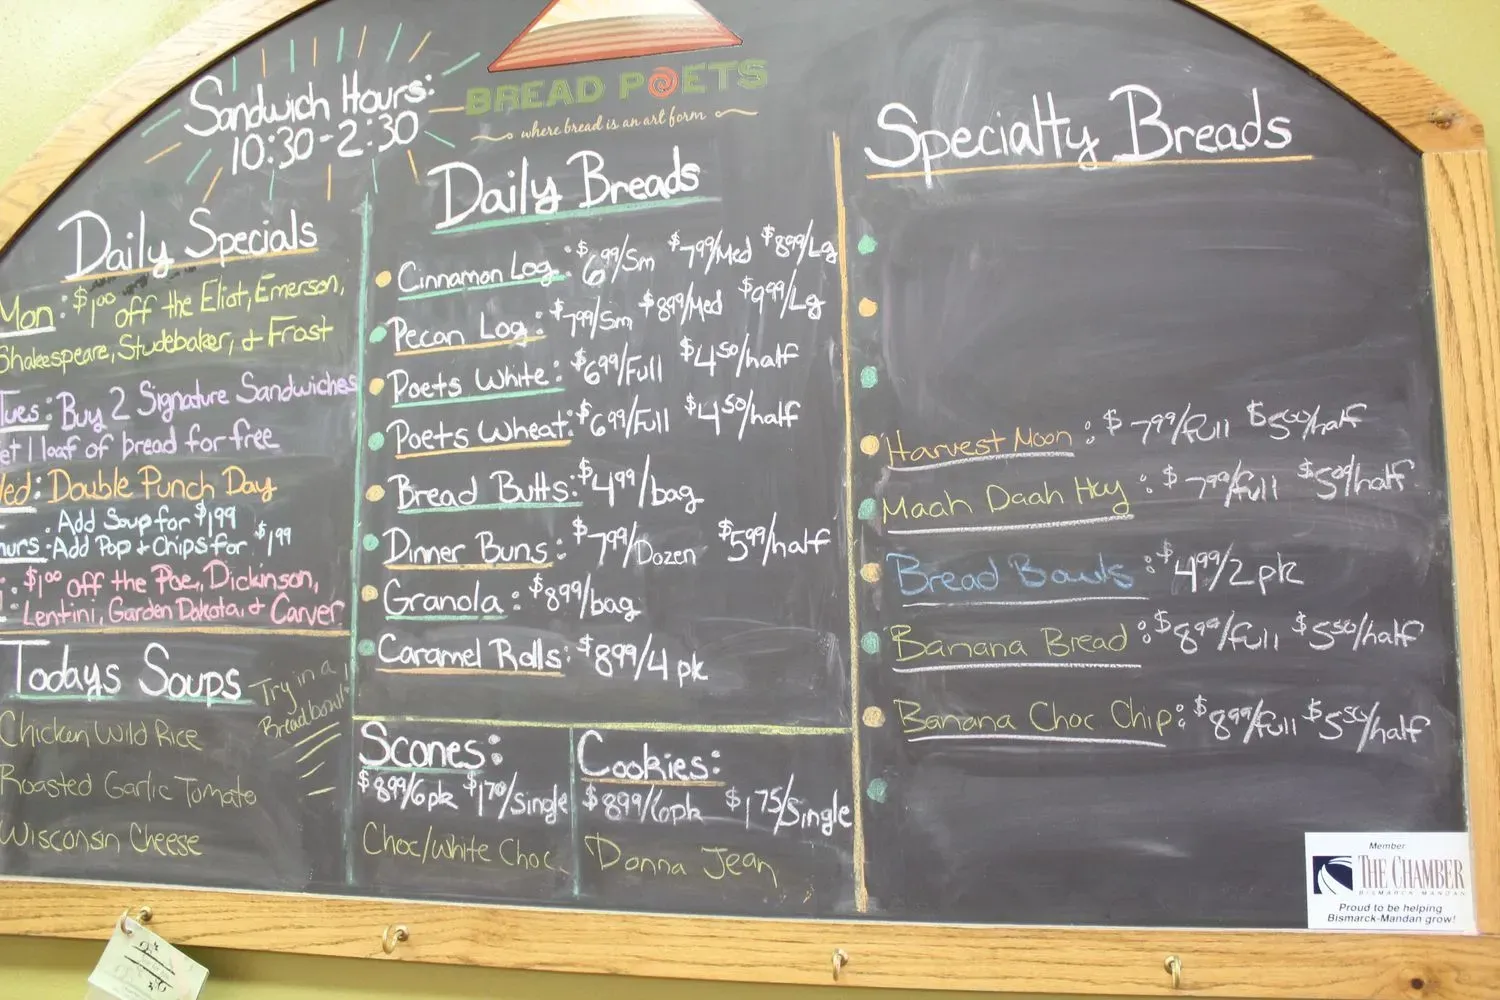 Sandwich Hours:
10:30-2:30
BREAD POETS
where bread is an art form
Daily Specials
Mon: $1.00 off the Eliot, Emerson,
Shakespeare, Studebaker, & Frost
Tues: Buy 2 Signature Sandwiches
et 1 loaf of bread for free
Wed: Double Punch Day
hurs: Add Soup for $1.99
-Add Pop & Chips for $1.99
i: $1.00 off the Poe, Dickinson,
Lentini, Garden Dakota, & Carver
Todays Soups
Try in a
Breadbowl!
Chicken Wild Rice
Roasted Garlic Tomato
Wisconsin Cheese
Daily Breads
Cinnamon Log: $6.99/Sm $7.99/Med $8.99/Lg
Pecan Log: $7.99/Sm $8.99/Med $9.99/Lg
Poets White: $6.99/Full $4.50/half
Poets Wheat: $6.99/Full $4.50/half
Bread Butts: $4.99/bag
Dinner Buns: $7.99/Dozen $5.99/half
Granola: $8.99/bag
Caramel Rolls: $8.99/4 pk
Scones:
$8.99/6pk $1.70/Single
Choc/White Choc
Cookies:
$8.99/6pk $1.75/Single
Donna Jean
Specialty Breads
Harvest Moon: $7.99/full $5.00/half
Maah Daah Hey: $7.99/full $5.00/half
Bread Bowls: $4.99/2pk
Banana Bread: $8.99/full $5.50/half
Banana Choc Chip: $8.99/full $5.50/half
Member
THE CHAMBER
BISMARCK MANDAN
Proud to be helping
Bismarck-Mandan grow!